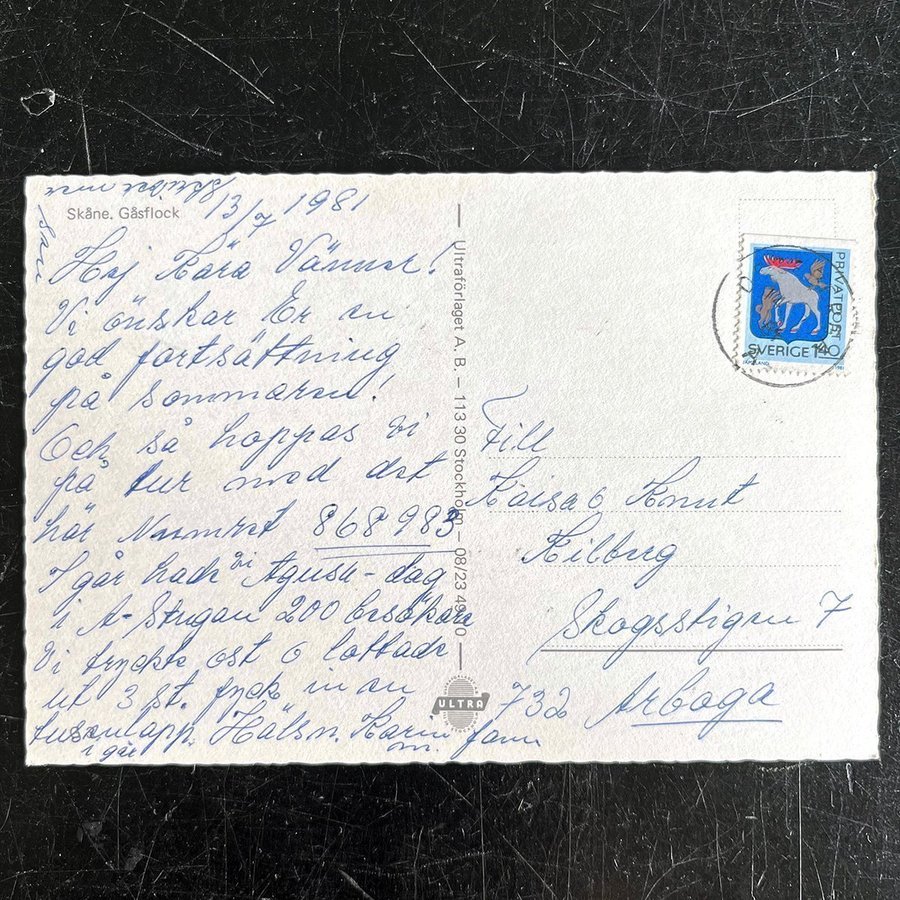 Skåne. Gåsflock
13/7 1981
Hej Kära Vänner!
Vi önskar Er en
god fortsättning
på sommaren!
Och så hoppas vi
på tur med det
här Numret 868983
I går hade vi Agusa-dag
i A-Stugan 200 besökare
Vi tryckte ost o lottade
ut 3 st. fyck in en
tusenlapp. Hälsn. Karin
i går
m. fam
Ultraförlaget A. B. – 113 30 Stockholm – 08/23
ULTRA
PRIVATPOST
SVERIGE 140
JÄMTLAND
1981
Till
Kaisa o Knut
Kilberg
Skogsstigen 7
732 Arboga